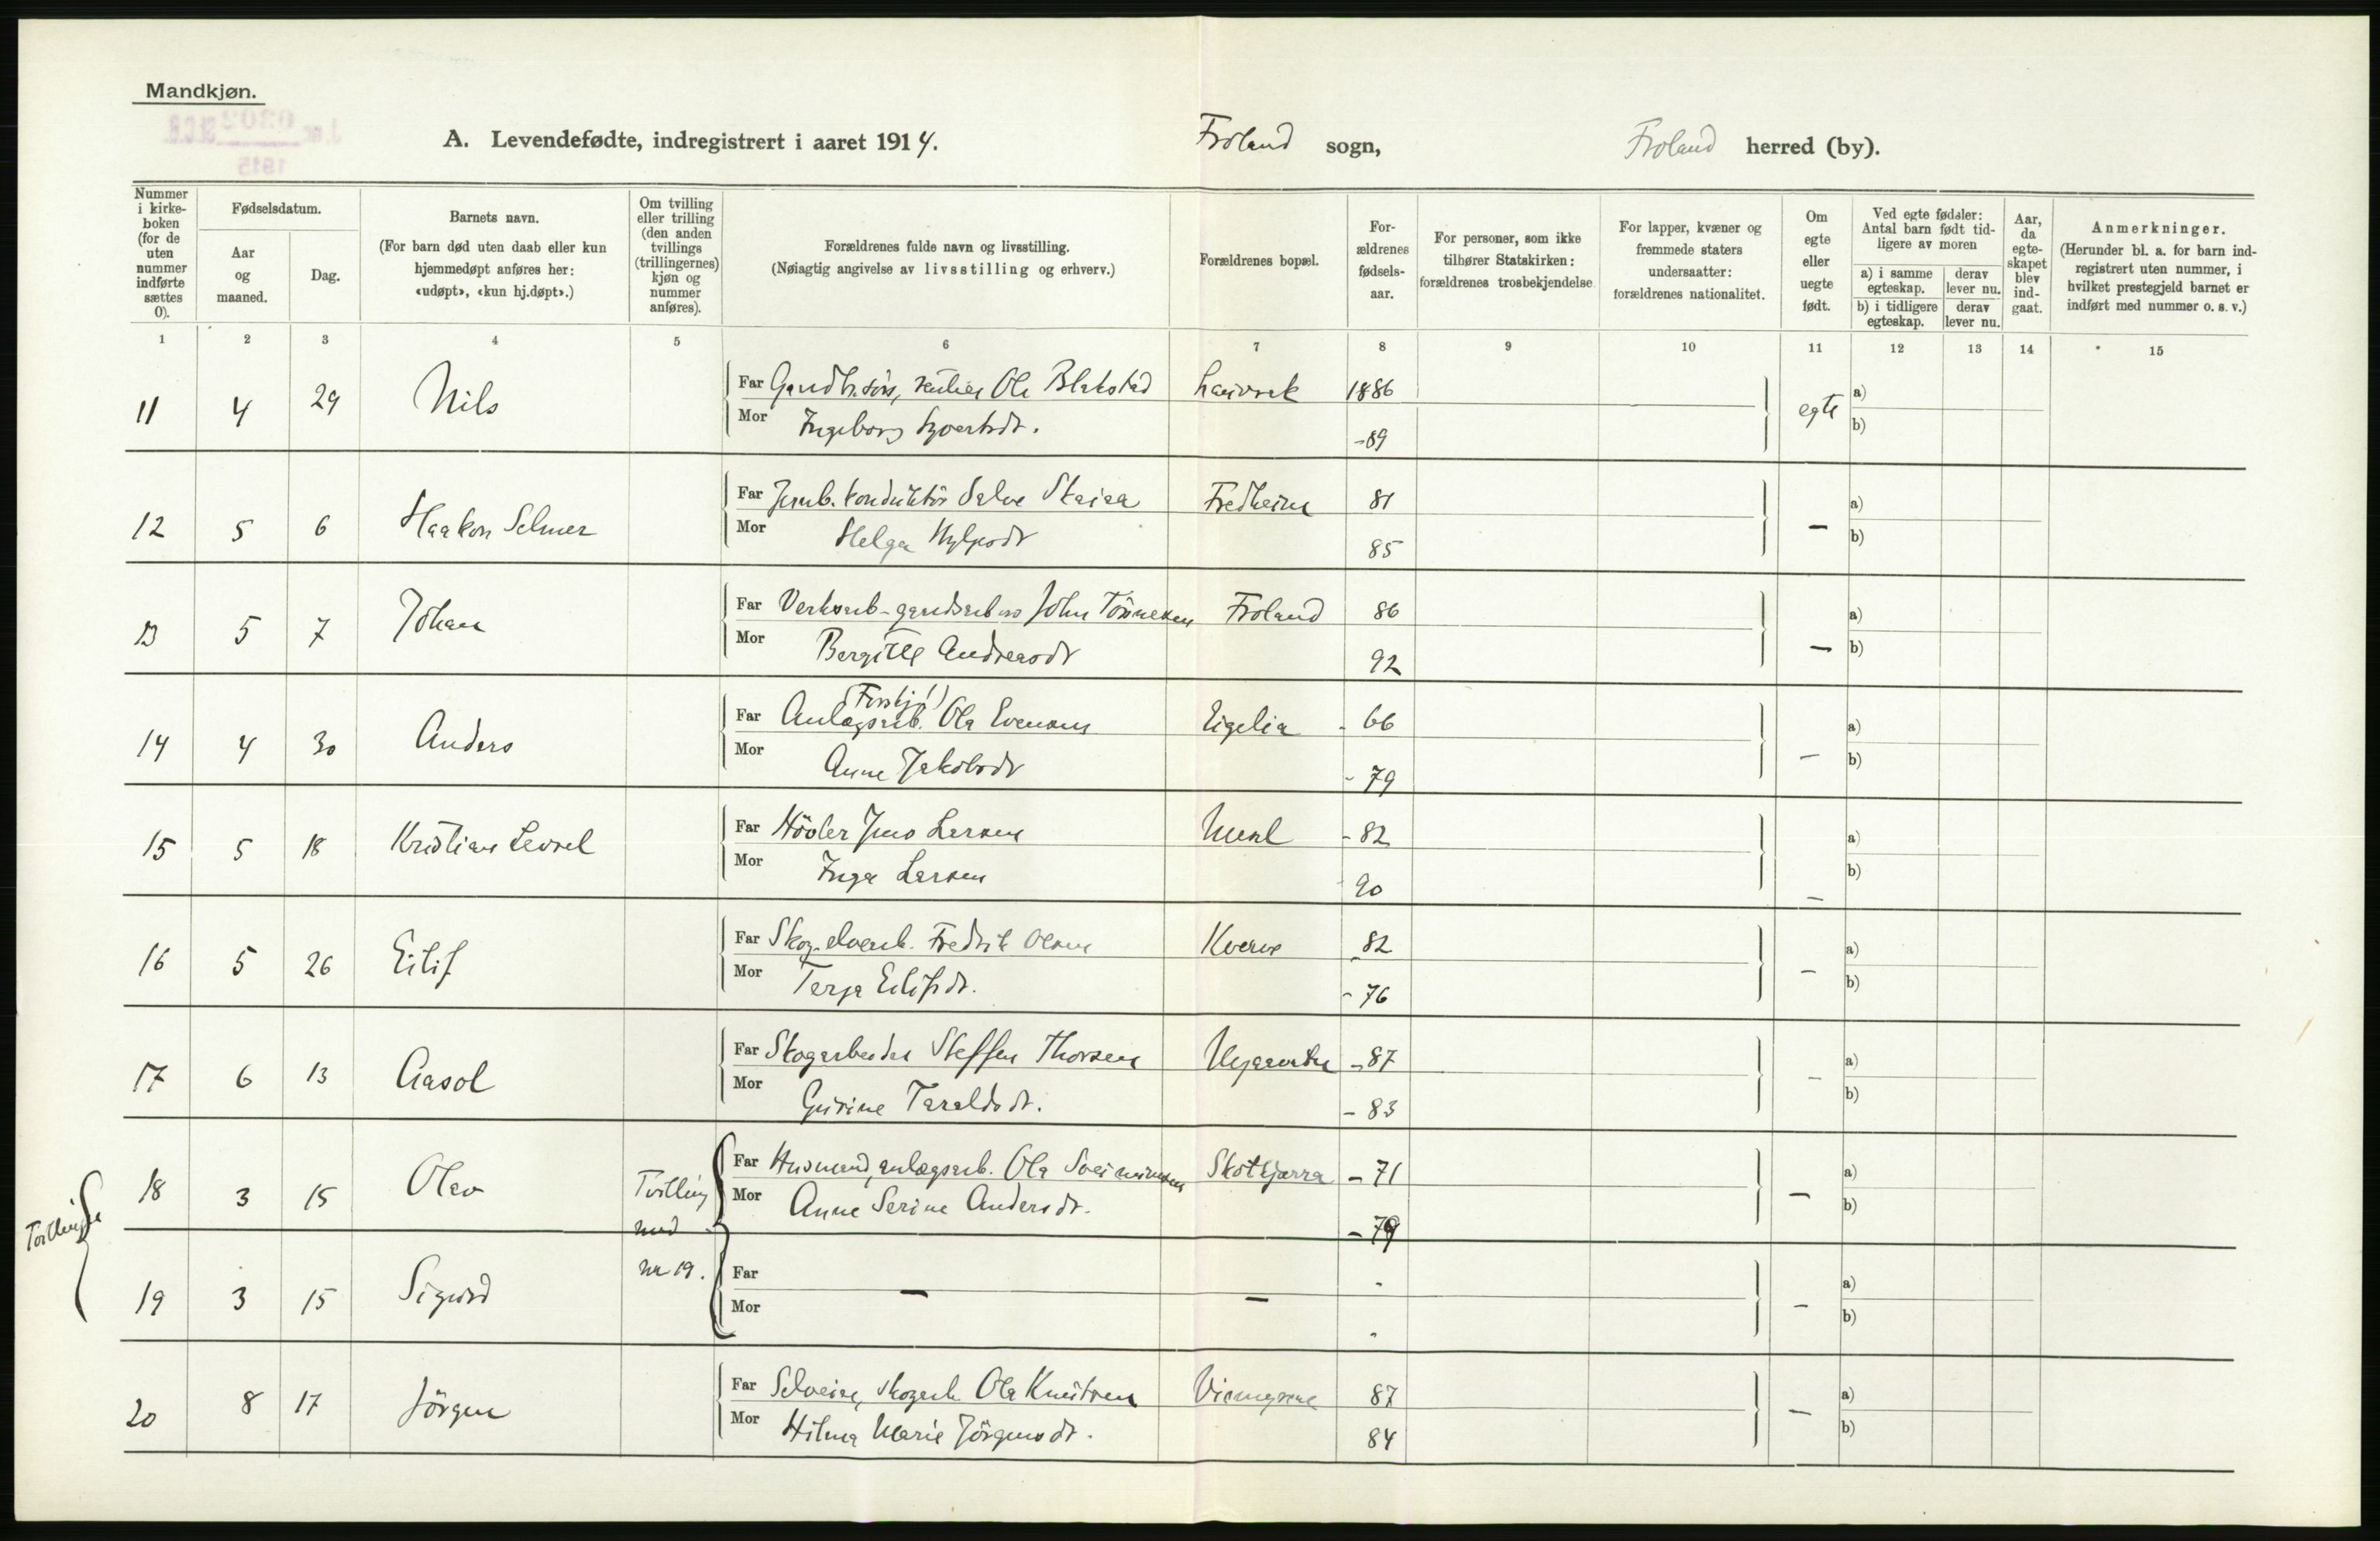 Mandkjøn.
A. Levendefødte, indregistrert i aaret 1914. Froland sogn, Froland herred (by).
Nummer i kirke-boken (for de uten nummer indførte sættes 0).
Fødselsdatum.
Aar og maaned.
Dag.
Barnets navn.
(For barn død uten daab eller kun hjemmedøpt anføres her: «udøpt», «kun hj.døpt».)
Om tvilling eller trilling (den anden tvillings (trillingernes) kjøn og nummer anføres).
Forældrenes fulde navn og livsstilling.
(Nøiagtig angivelse av livsstilling og erhverv.)
Forældrenes bopæl.
For-ældrenes fødsels-aar.
For personer, som ikke tilhører Statskirken: forældrenes trosbekjendelse
For lapper, kvæner og fremmede staters undersaatter: forældrenes nationalitet.
Om egte eller uegte født.
Ved egte fødsler: Antal barn født tid-ligere av moren
a) i samme egteskap.
derav lever nu.
b) i tidligere egteskap.
derav lever nu.
Aar, da egte-skapet blev ind-gaat.
Anmerkninger.
(Herunder bl. a. for barn ind-registrert uten nummer, i hvilket prestegjeld barnet er indført med nummer o. s. v.)
1 2 3 4 5 6 7 8 9 10 11 12 13 14 15
11 4 29 Nils Far Ole Blakstad 1886 egte a)
Mor Ingeborg -89 b)
12 5 6 Haakon Selmer Far Jernb. konduktør Salve Skaiaa Fredheim 81 — a)
Mor Helga 85 b)
13 5 7 Johan Far John Tønnesen Froland 86 — a)
Mor Bergitte Andreasdt 92 b)
14 4 30 Anders Far Anlægsarb. Ola Evensen Eigelia - 66 — a)
Mor Anne Jakobsdt - 79 b)
15 5 18 Kristian Far Jens Larsen - 82 — a)
Mor Inga Larsen 90 b)
16 5 26 Eilif Far Fredrik Olsen 82 — a)
Mor Terje Eilifsdt. - 76 b)
17 6 13 Aasol Far Skogarbeider Steffen Thorsen - 87 — a)
Mor Gurine Taraldsdt. - 83 b)
Tvillinger
18 3 15 Olav Tvilling med Far Husmand, anlægsarb. Ola - 71 — a)
Mor Anne Serine Andersdt. - 79 b)
19 3 15 Sigurd nr 19. Far — — - — a)
Mor - b)
20 8 17 Jörgen Far Selveier, skogarb. Ola Knutsen 87 — a)
Mor Hilma Marie Jörgensdt. 84 b)